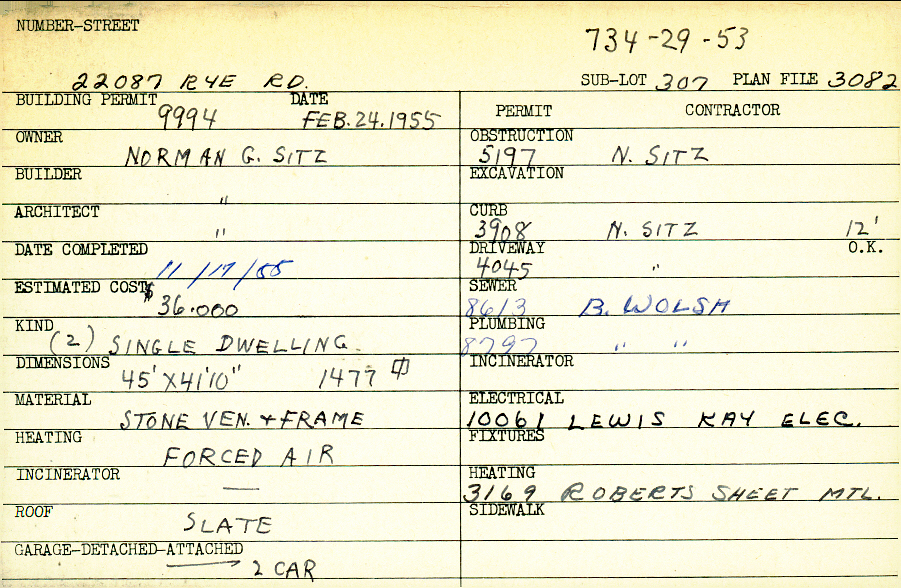 NUMBER-STREET
734-29-53
22087 RYE RD.
SUB-LOT 307 PLAN FILE 3082
BUILDING PERMIT DATE
9994 FEB.24.1955
PERMIT CONTRACTOR
OWNER
NORMAN G. SITZ
OBSTRUCTION
5197 N. SITZ
BUILDER
"
EXCAVATION
ARCHITECT
"
CURB
3908 N. SITZ 12'
DATE COMPLETED
11/17/55
DRIVEWAY O.K.
4045 "
ESTIMATED COST
$36.000
SEWER
8613 B. WOLSH
KIND
(2) SINGLE DWELLING.
PLUMBING
8797 " "
DIMENSIONS
45' X 41'10" 1477
INCINERATOR
MATERIAL
STONE VEN. + FRAME
ELECTRICAL
10061 LEWIS KAY ELEC.
HEATING
FORCED AIR
FIXTURES
INCINERATOR
—
HEATING
3169 ROBERTS SHEET MTL.
ROOF
SLATE
SIDEWALK
GARAGE-DETACHED-ATTACHED
2 CAR